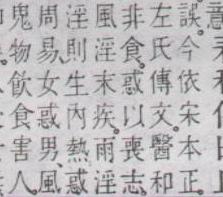 誤今依宋本正
左氏傳文醫和
非食惑以喪志
風淫末疾。雨淫
淫則生內熱惑
周易、女惑男、風
鬼物飲食害人。